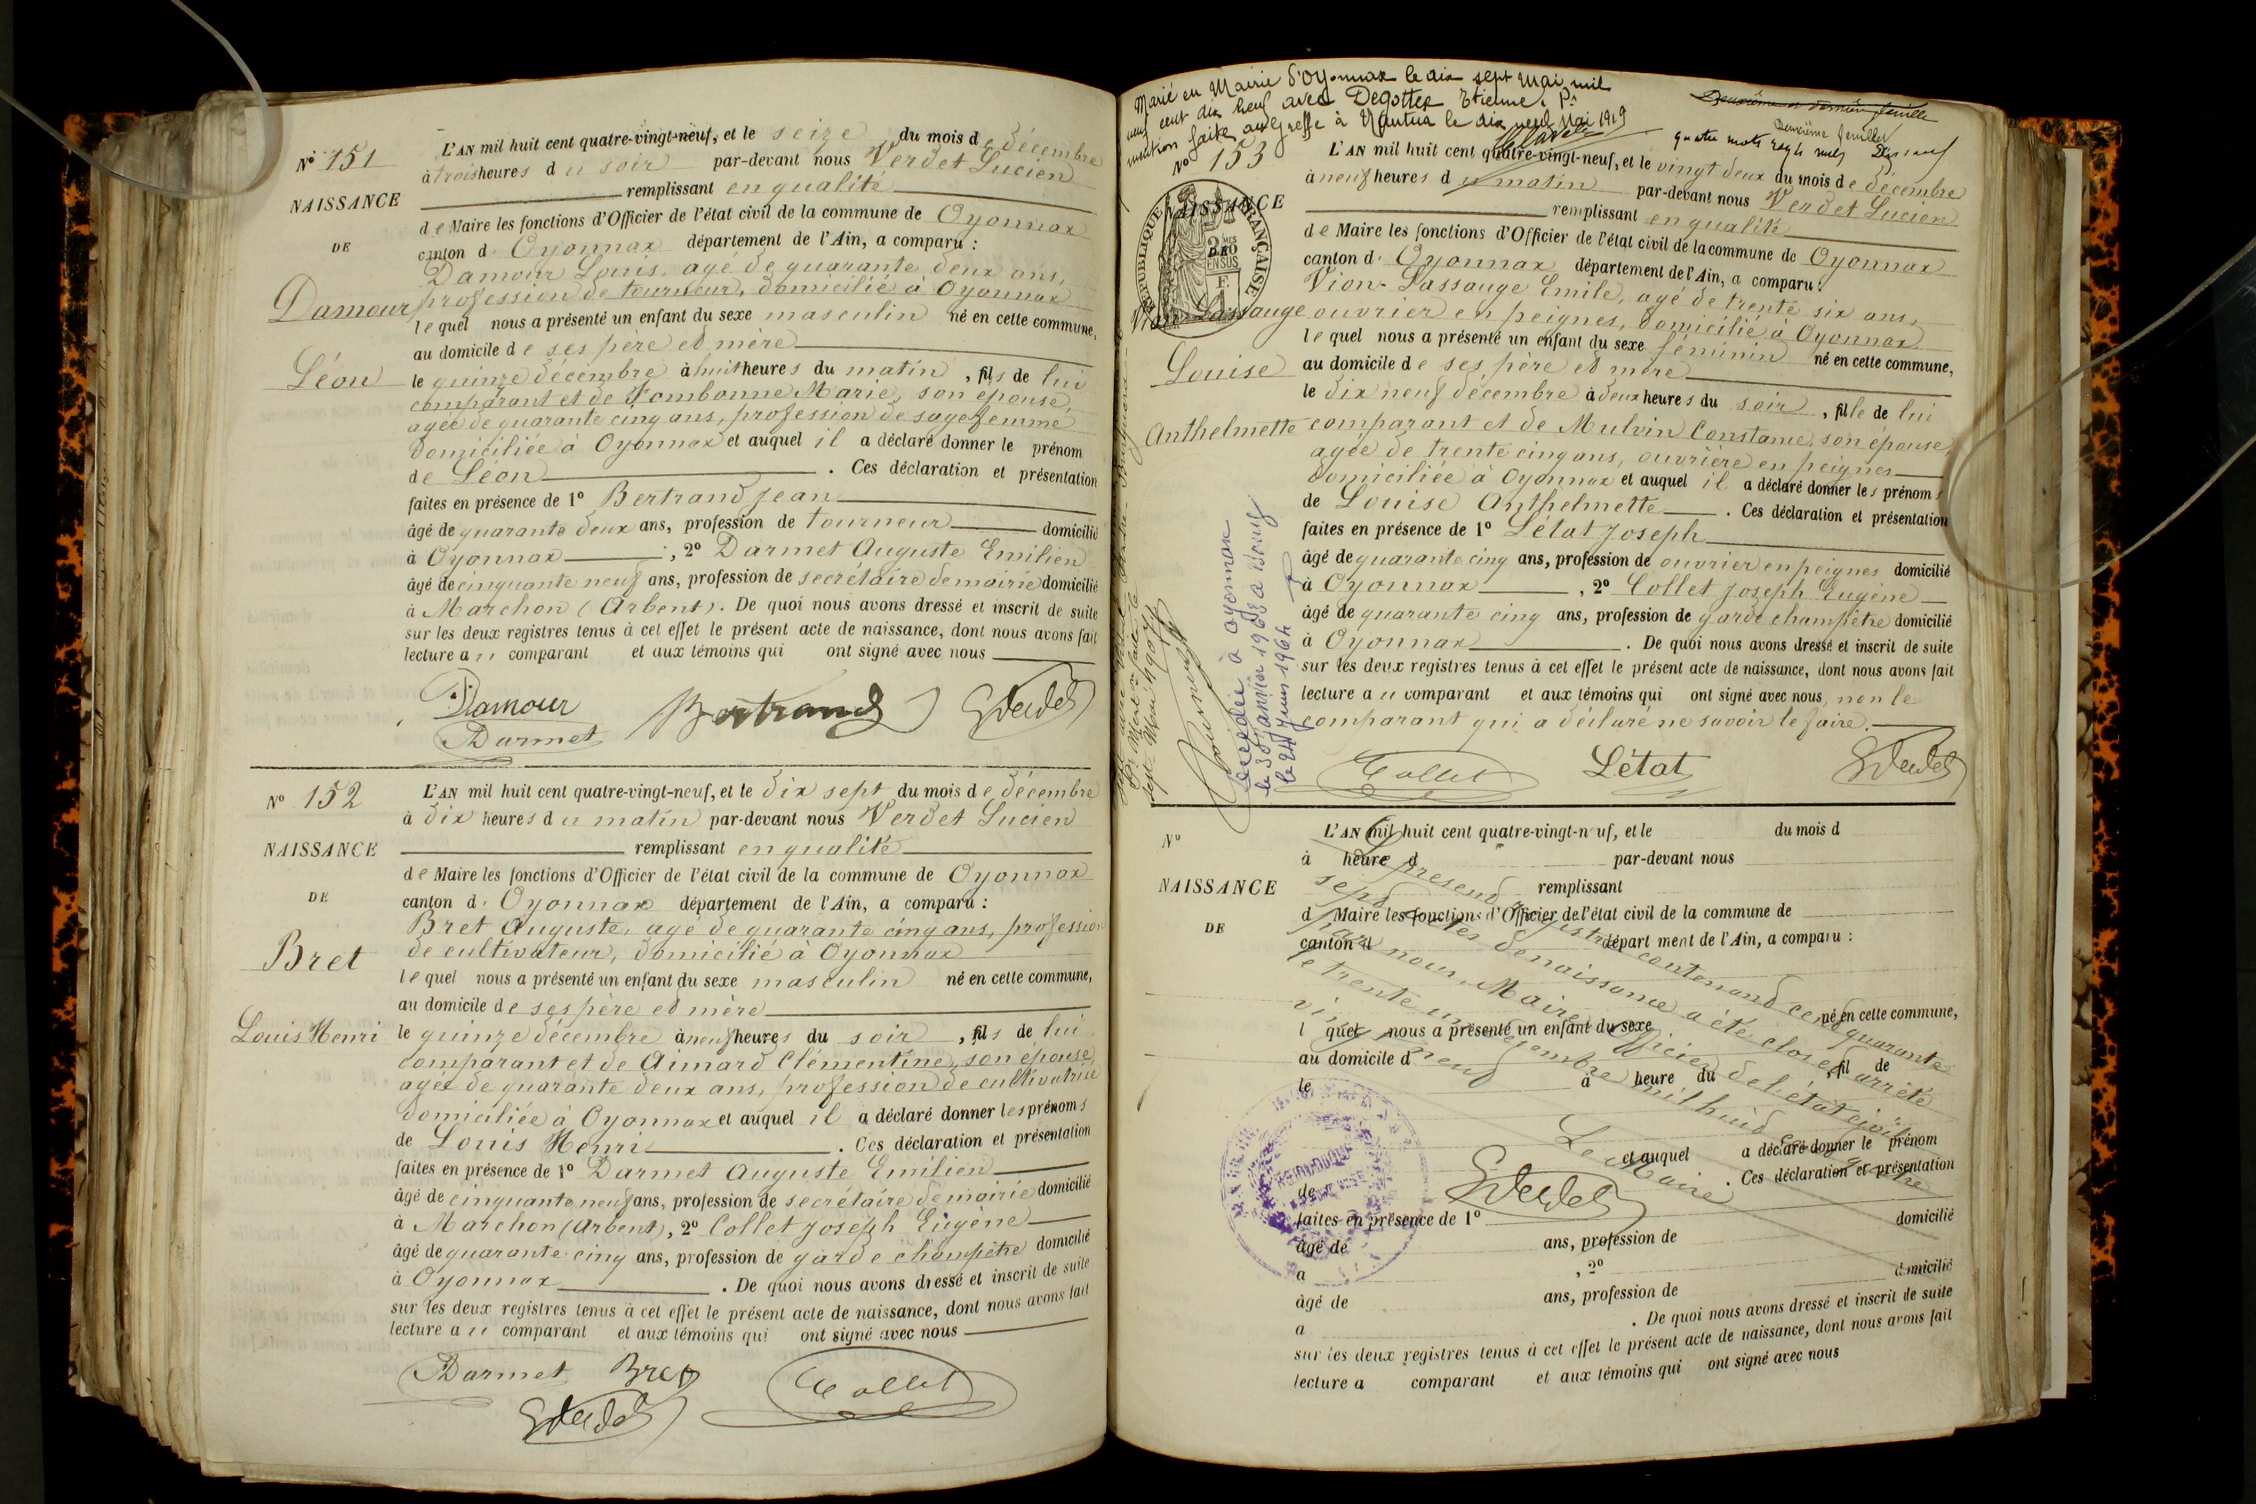 N° 151
NAISSANCE
DE
Damour
Léon
L'AN mil huit cent quatre-vingt-neuf, et le seize du mois de décembre
à trois heures du soir par-devant nous Verdet Lucien
remplissant en qualité
de Maire les fonctions d'Officier de l'état civil de la commune de Oyonnax
canton d' Oyonnax département de l'Ain, a comparu :
Damour Louis, agé de quarante deux ans,
profession de tourneur, domicilié à Oyonnax
lequel nous a présenté un enfant du sexe masculin né en cette commune,
au domicile de ses père et mère
le quinze décembre à huit heures du matin, fils de lui
comparant et de Combonne Marie, son épouse,
agée de quarante cinq ans, profession de sage femme
domiciliée à Oyonnax et auquel il a déclaré donner le prénom
de Léon. Ces déclaration et présentation
faites en présence de 1° Bertrand Jean
âgé de quarante deux ans, profession de tourneur domicilié
à Oyonnax, 2° Darmet Auguste Emilien
âgé de cinquante neuf ans, profession de secrétaire de mairie domicilié
à Marchon (Arbent). De quoi nous avons dressé et inscrit de suite
sur les deux registres tenus à cet effet le présent acte de naissance, dont nous avons fait
lecture au comparant et aux témoins qui ont signé avec nous
Damour Bertrand Verdet
Darmet
N° 152
NAISSANCE
DE
Bret
Louis Henri
L'AN mil huit cent quatre-vingt-neuf, et le dix sept du mois de décembre
à dix heures du matin par-devant nous Verdet Lucien
remplissant en qualité
de Maire les fonctions d'Officier de l'état civil de la commune de Oyonnax
canton d' Oyonnax département de l'Ain, a comparu :
Bret Auguste, agé de quarante cinq ans, profession
de cultivateur, domicilié à Oyonnax
lequel nous a présenté un enfant du sexe masculin né en cette commune,
au domicile de ses père et mère
le quinze décembre à neuf heures du soir, fils de lui
comparant et de Aimard Clémentine, son épouse
agée de quarante deux ans, profession de cultivatrice
domiciliée à Oyonnax et auquel il a déclaré donner les prénoms
de Louis Henri. Ces déclaration et présentation
faites en présence de 1° Darmet Auguste Emilien
âgé de cinquante neuf ans, profession de secrétaire de mairie domicilié
à Marchon (Arbent), 2° Collet Joseph Eugène
âgé de quarante cinq ans, profession de garde champêtre domicilié
à Oyonnax. De quoi nous avons dressé et inscrit de suite
sur les deux registres tenus à cet effet le présent acte de naissance, dont nous avons fait
lecture au comparant et aux témoins qui ont signé avec nous
Darmet Bret Collet
Verdet
Marié en Mairie d'Oyonnax le dix sept Mai mil
neuf cent dix neuf avec Degottex Etienne. Pr
mention faite au greffe à Nantua le dix neuf Mai 1919
Deuxième et dernière feuille
Deuxième feuillet
quatre mots rayés nuls
N° 153
NAISSANCE
DE
RÉPUBLIQUE FRANÇAISE
2 DES 10 EN SUS
Vion Lassauge
Louise
Anthelmette
L'AN mil huit cent quatre-vingt-neuf, et le vingt deux du mois de décembre
à neuf heures du matin par-devant nous Verdet Lucien
remplissant en qualité
de Maire les fonctions d'Officier de l'état civil de la commune de Oyonnax
canton d' Oyonnax département de l'Ain, a comparu :
Vion-Lassauge Emile, agé de trente six ans,
ouvrier en peignes, domicilié à Oyonnax
lequel nous a présenté un enfant du sexe féminin né en cette commune,
au domicile de ses père et mère
le dix neuf décembre à deux heures du soir, fille de lui
comparant et de Mulvin Constance, son épouse,
agée de trente cinq ans, ouvrière en peignes
domiciliée à Oyonnax et auquel il a déclaré donner les prénoms
de Louise Anthelmette. Ces déclaration et présentation
faites en présence de 1° Létat Joseph
âgé de quarante cinq ans, profession de ouvrier en peignes domicilié
à Oyonnax, 2° Collet Joseph Eugène
âgé de quarante cinq ans, profession de garde champêtre domicilié
à Oyonnax. De quoi nous avons dressé et inscrit de suite
sur les deux registres tenus à cet effet le présent acte de naissance, dont nous avons fait
lecture au comparant et aux témoins qui ont signé avec nous, non le
comparant qui a déclaré ne savoir le faire.
Collet Létat Verdet
Décédée à Oyonnax
N°
NAISSANCE
DE
L'AN mil huit cent quatre-vingt-neuf, et le du mois d
à heure d par-devant nous
remplissant
d Maire les fonctions d'Officier de l'état civil de la commune de
canton d département de l'Ain, a comparu :
né en cette commune,
l quel nous a présenté un enfant du sexe
au domicile d
le à heure du , fil de
et auquel a déclaré donner le prénom
de . Ces déclaration et présentation
faites en présence de 1°
domicilié
âgé de ans, profession de
a , 2°
domicilié
âgé de ans, profession de
a . De quoi nous avons dressé et inscrit de suite
sur les deux registres tenus à cet effet le présent acte de naissance, dont nous avons fait
lecture a comparant et aux témoins qui ont signé avec nous
Le présent registre contenant cent quarante
sept actes de naissance a été clos et arrêté
par nous, Maire, officier de l'état civil
le trente un décembre mil huit cent quatre
vingt neuf
Le Maire
Verdet